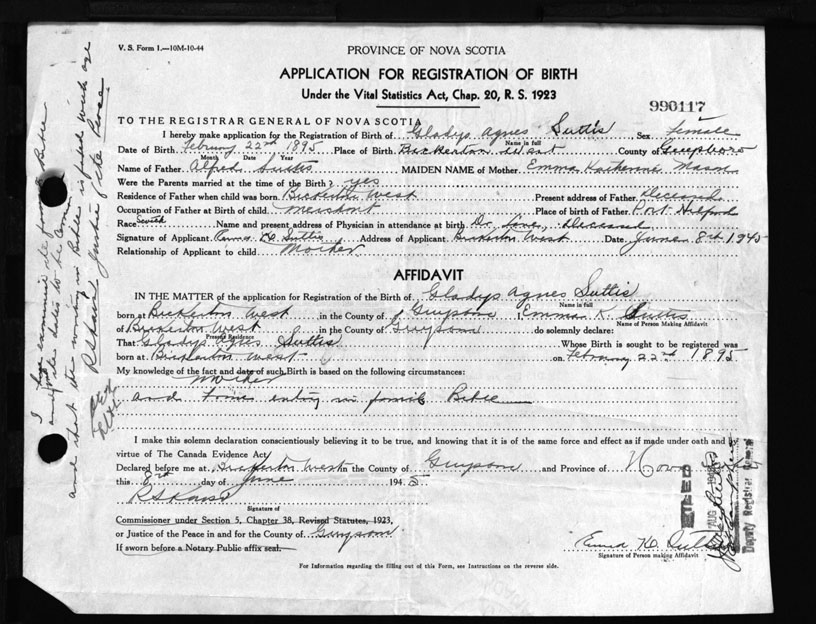 V. S. Form 1.—10M-10-44
PROVINCE OF NOVA SCOTIA
APPLICATION FOR REGISTRATION OF BIRTH
Under the Vital Statistics Act, Chap. 20, R. S. 1923
990117
TO THE REGISTRAR GENERAL OF NOVA SCOTIA
I hereby make application for the Registration of Birth of Gladys Agnes Suttis, Sex female
Name in full
Date of Birth February 22nd 1895 Place of Birth Bickerton West County of Guysboro
Month Date Year
Name of Father Alfred Suttis MAIDEN NAME of Mother Emma Katherine Mason
Were the Parents married at the time of the Birth? yes
Residence of Father when child was born Bickerton West Present address of Father Deceased
Occupation of Father at Birth of child merchant Place of birth of Father Port Hilford
Race Name and present address of Physician in attendance at birth Dr Deceased
Signature of Applicant Emma K Suttis Address of Applicant Bickerton West Date June 8th 1945
Relationship of Applicant to child Mother
AFFIDAVIT
IN THE MATTER of the application for Registration of the Birth of Gladys Agnes Suttis
Name in full
born at Bickerton West in the County of Guysboro I, Emma K. Suttis
Name of Person Making Affidavit
of Bickerton West in the County of Guysboro do solemnly declare:
Present Residence
That Gladys Agnes Suttis Whose Birth is sought to be registered was
born at Bickerton West on February 22nd 1895
My knowledge of the fact and date of such Birth is based on the following circumstances:
Mother
and entry in family Bible
I make this solemn declaration conscientiously believing it to be true, and knowing that it is of the same force and effect as if made under oath and by
virtue of The Canada Evidence Act.
Declared before me at Bickerton West in the County of Guysboro and Province of Nova
this 8th day of June 1945
Signature of
Commissioner under Section 5, Chapter 38, Revised Statutes, 1923,
or Justice of the Peace in and for the County of Guysboro
If sworn before a Notary Public affix seal.
Emma K Suttis
Signature of Person making Affidavit
For Information regarding the filling out of this Form, see Instructions on the reverse side.
FILED
AUG
Deputy Registrar General
I have examined the family Bible
and that the writing in Bible is